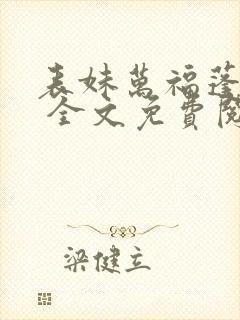 表妹萬福蓬
全文免費閱
梁健立